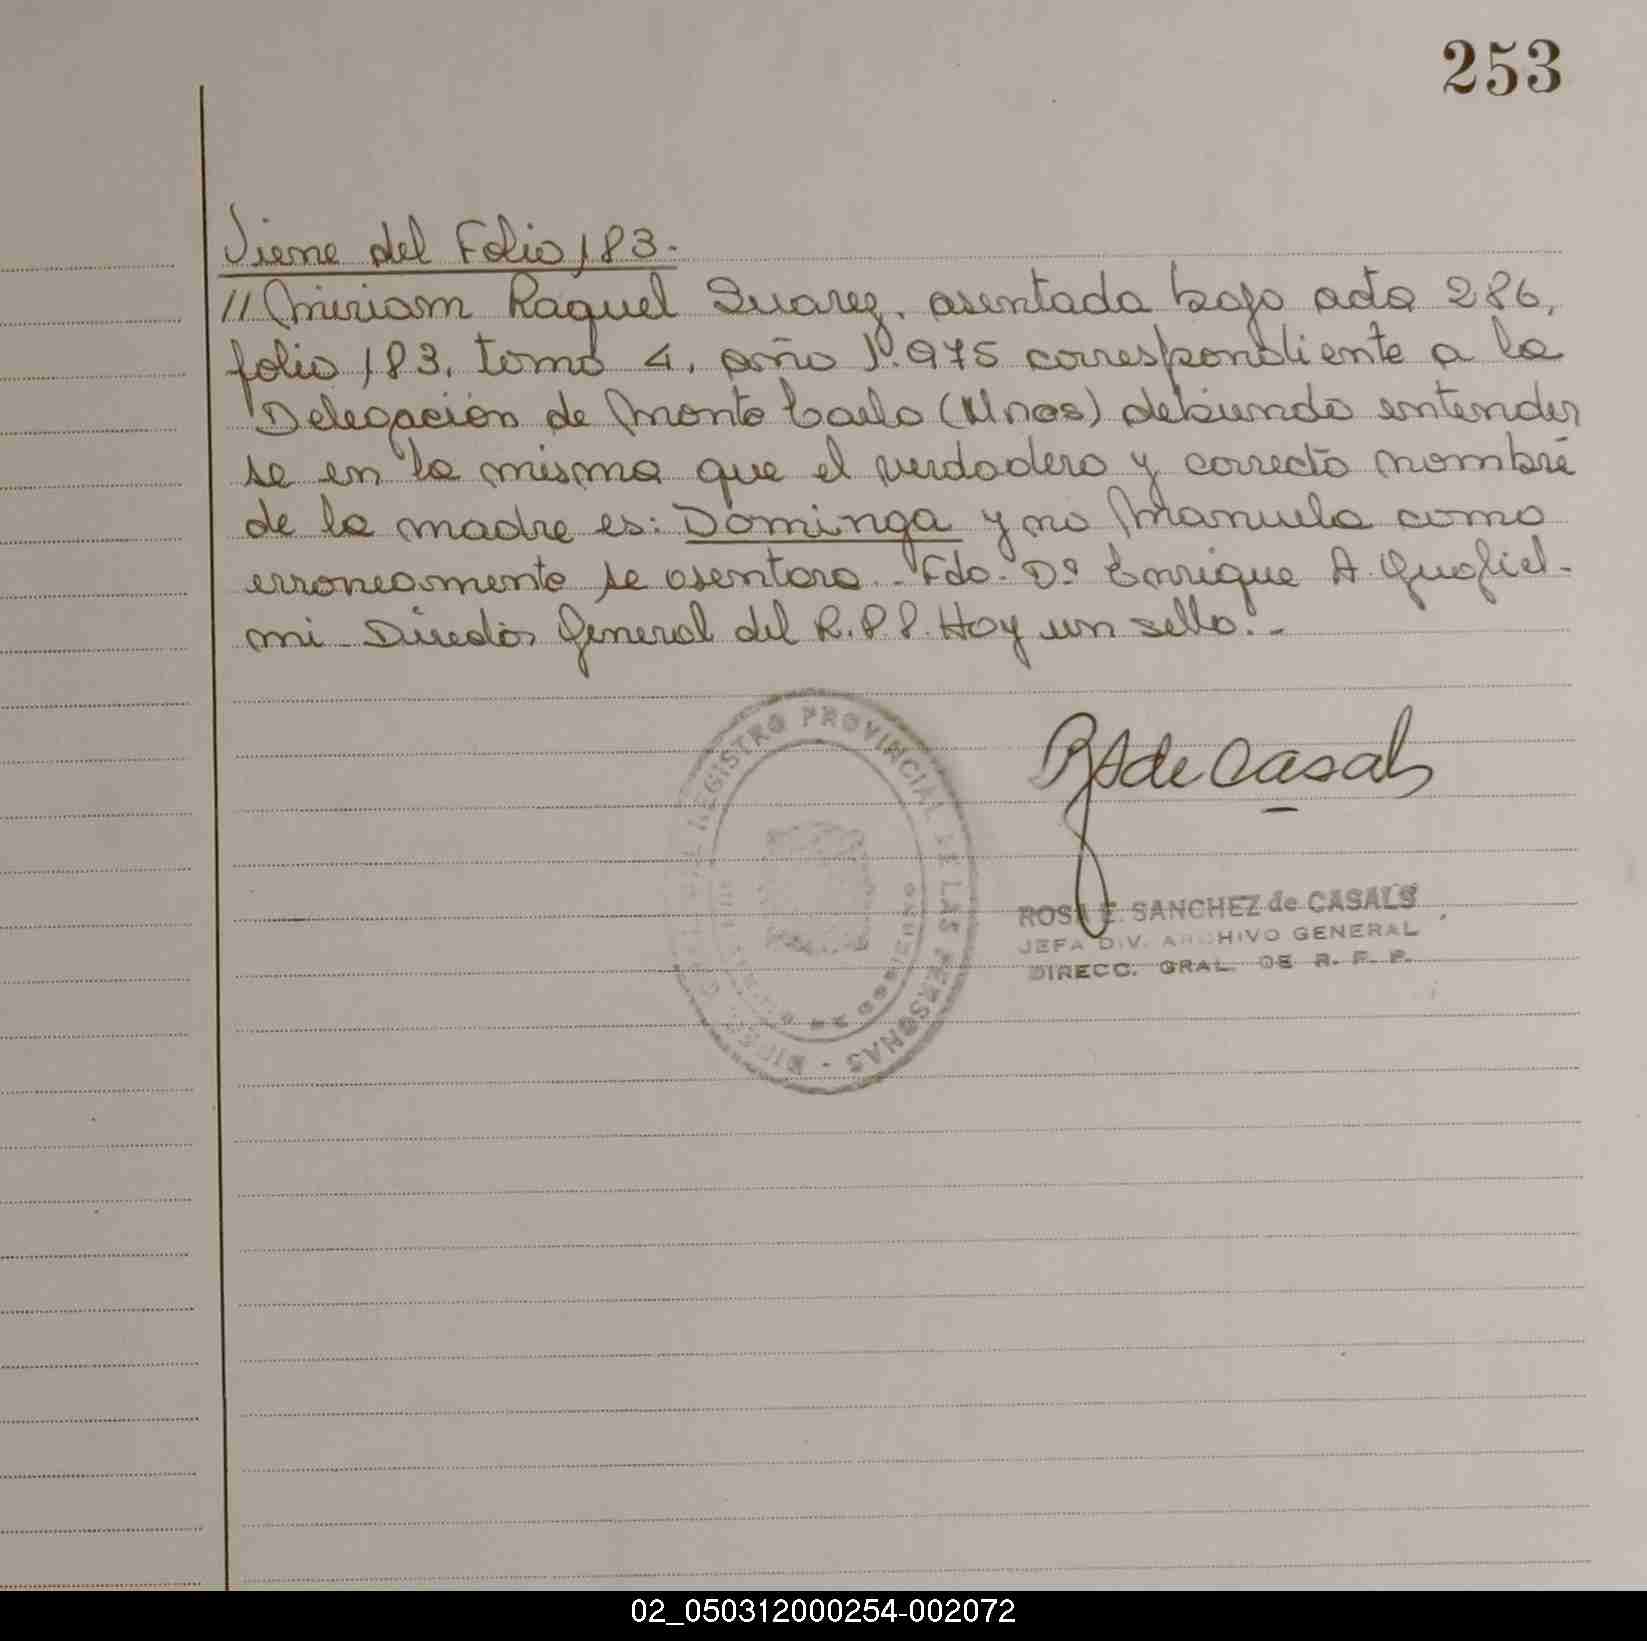 253
Viene del Folio 183.-
// Miriam Raquel Suarez, asentada bajo acta 286,
folio 183, tomo 4, año 1.975 correspondiente a la
Delegación de Monte Carlo (Mnes) debiendo entender
se en la misma que el verdadero y correcto nombre
de la madre es: Dominga y no Manuela como
erroneamente se asentara.- Fdo. Dº Enrique A. Gugliel-
mi - Director General del R.P.P. Hay un sello.-
REGISTRO PROVINCIAL DE LAS PERSONAS
RS de Casals
ROSA E. SANCHEZ de CASALS
JEFA DIV. ARCHIVO GENERAL
DIRECC. GRAL. DE R. P. P.
02_050312000254-002072